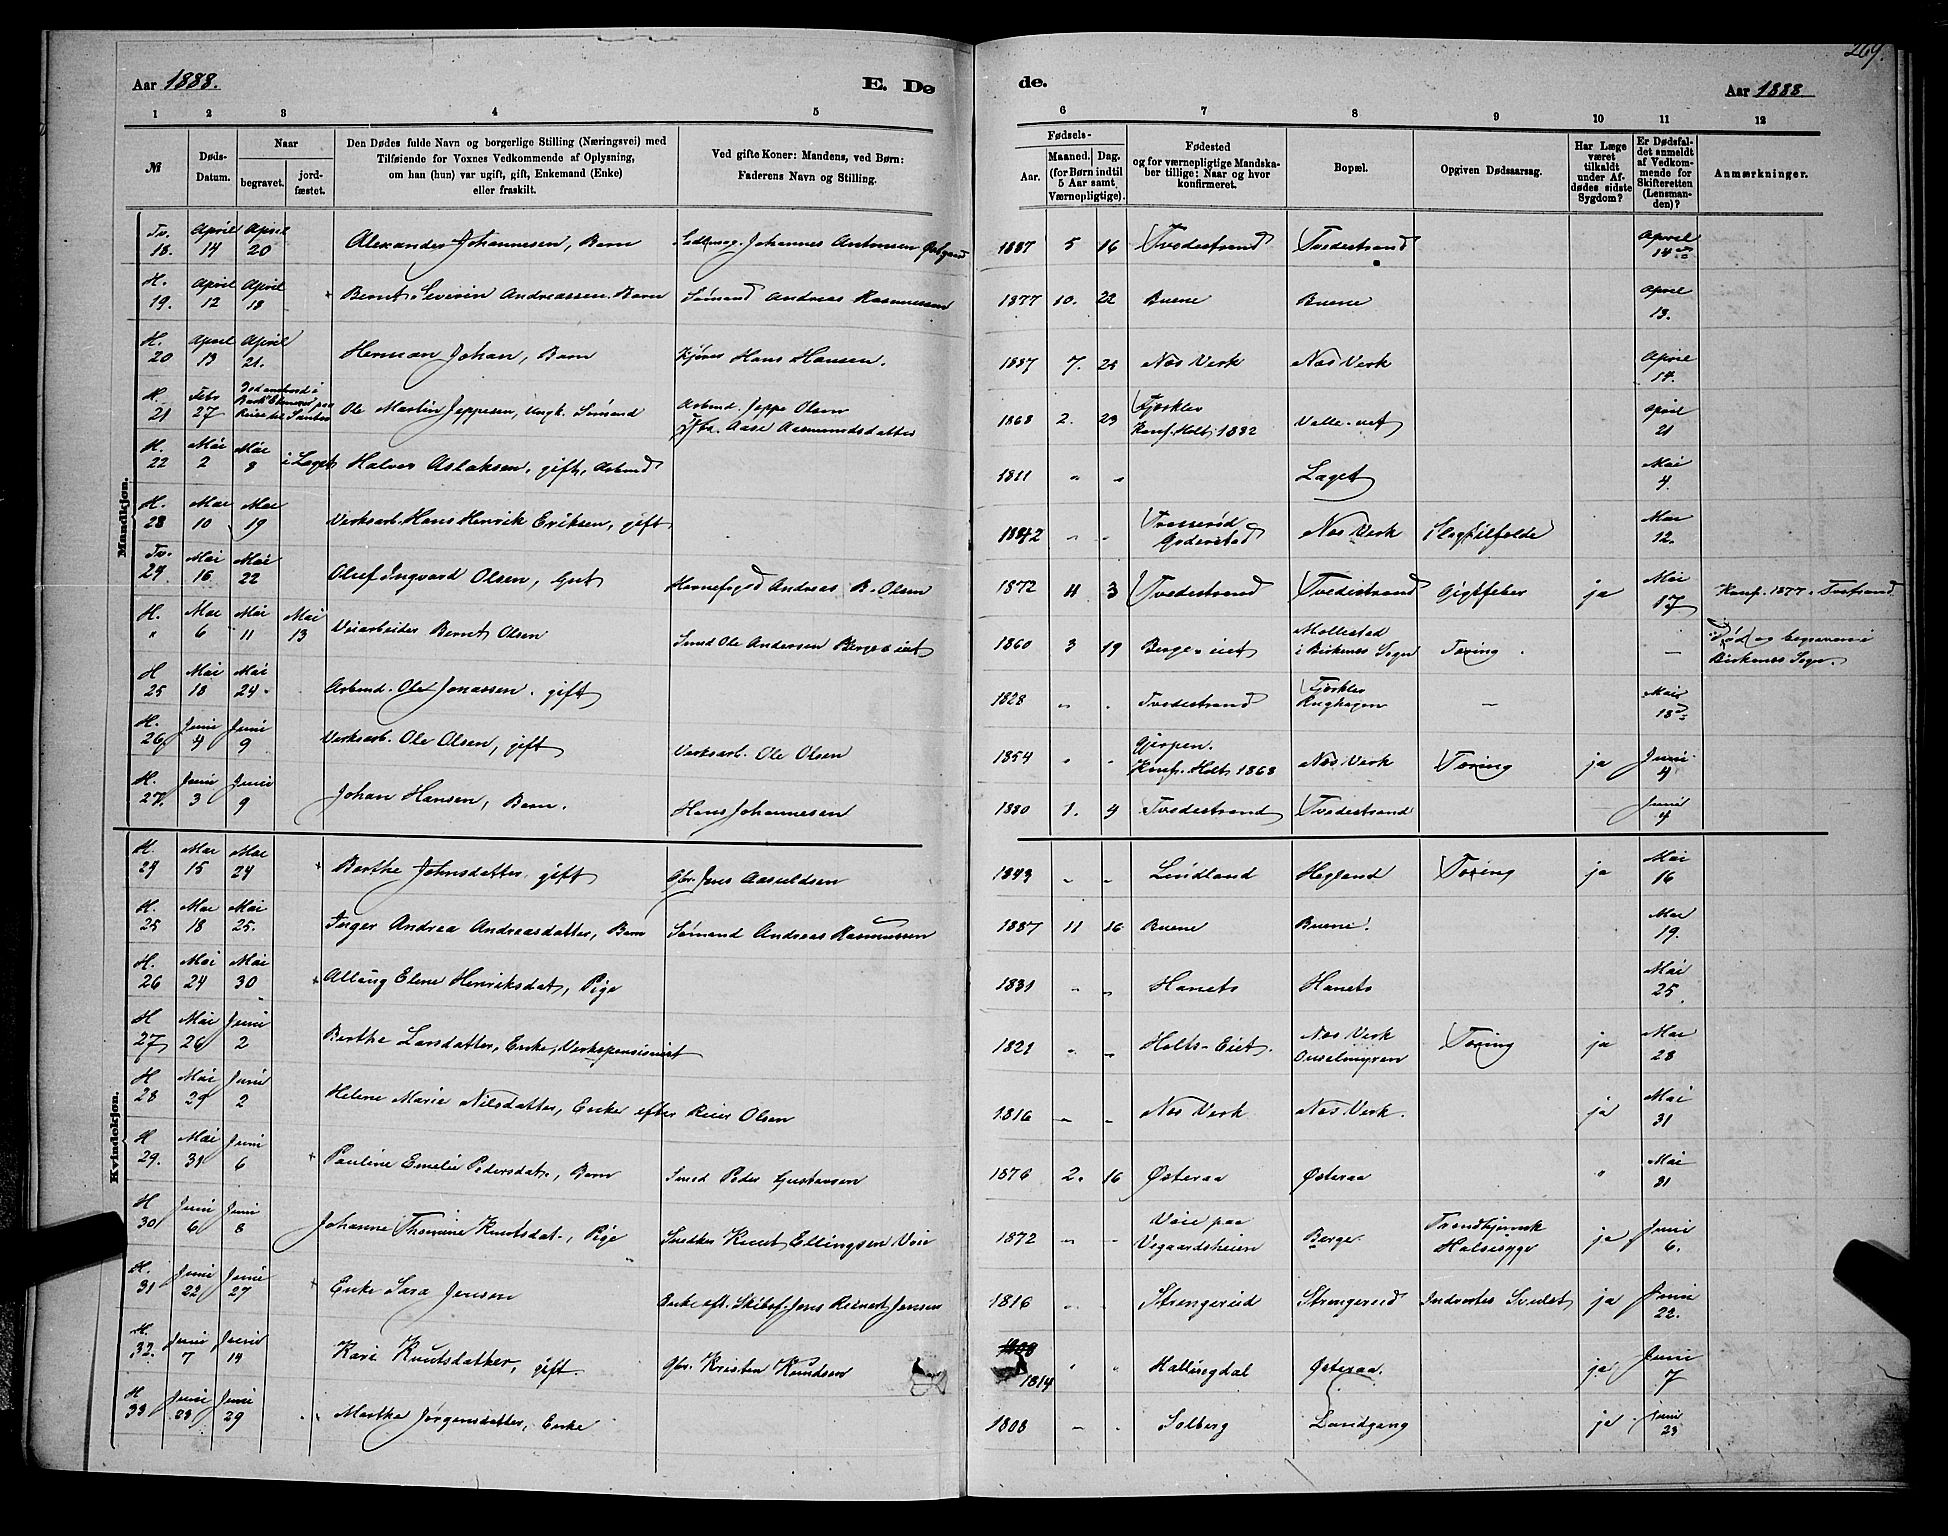 269.
Aar 1888. E. Dø de. Aar 1888.
1 2 3 4 5 6 7 8 9 10 11 12
№
Døds-Datum.
Naar
begravet.
jord-fæstet.
Den Dødes fulde Navn og borgerlige Stilling (Næringsvei) med
Tilføiende for Voxnes Vedkommende af Oplysning,
om han (hun) var ugift, gift, Enkemand (Enke)
eller fraskilt.
Ved gifte Koner: Mandens, ved Børn:
Faderens Navn og Stilling.
Fødsels-
Aar.
Maaned. Dag.
(for Børn indtil
5 Aar samt
Værnepligtige).
Fødested
og for værnepligtige Mandska-
ber tillige: Naar og hvor
konfirmeret.
Bopæl.
Opgiven Dødsaarsag.
Har Læge
været
tilkaldt
under Af-
dødes sidste
Sygdom?
Er Dødsfal-
det anmeldt
af Vedkom-
mende for
Skifteretten
(Lensman-
den)?
Anmærkninger.
Mandkjøn.
Tv. 18. April 14 April 20 Alexander Johannesen, Barn Johannes Antonsen 1887 5 16 Tvedestrand Tvedestrand April 14
H. 19. April 12 April 18 Bernt Severin Andreassen. Barn Sømand Andreas Rasmussen 1877 10. 22 Buene Buene April 13.
H. 20 April 13 April 21. Herman Johan, Barn Kjører Hans Hansen. 1887 7. 25 Næs Verk Næs Verk April 14.
H. 21 Febr 27 Ole Martin Jeppesen, ungk. Sømand Arbmd. Jeppe Olsen
Aase Aasmundsdatter 1868 2. 23 Fjøsklev
Konf. Holt, 1882 Valle-eiet April 21
H. 22 Mai 2 Mai 8 i Laget Halvor Aslaksen, gift, Arbmd 1811 " " Laget Mai 4.
H. 23 Mai 10 Mai 19 Verksarb. Hans Henrik Eriksen, gift 1842 " " Næs Verk Slagtilfælde Mai 12.
Tv. 24 Mai 16 Mai 22 Oluf Ingvard Olsen, Gut Havnefoged Andreas B. Olsen 1872 4 3 Tvedestrand Tvedestrand Gigtfeber ja Mai 17 Konf. 1877
H. " Mai 6 Mai 11 Mai 13 Veiarbeider Bernt Olsen Smed Ole Andersen Berge eiet 1860 3 19 Berge-eiet Mollestad
i Birkenes Sogn Tæring — Død og begraven i
Birkenes Sogn.
H 25 Mai 18 Mai 24. Arbmd. Ole Jonassen, gift 1828 " " Tvedestrand Fjøsklev — Mai 18
H. 26 Juni 4 Juni 9 Verksarb. Ole Olsen, gift Verksarb. Ole Olsen 1854 " " Gjerpen.
Konf. Holt 1868 Næs Verk Tæring ja Juni 4
H. 27. Juni 3 Juni 9 Johan Hansen, Barn. Hans Johannesen 1880 1. 9 Tvedestrand Tvedestrand Juni 4
Kvindekjøn.
H. 24 Mai 15 Mai 24 Berthe Johnsdatter, gift Gbr. Jens Aasuldsen 1843 " " Lindland Hegland Tæring ja Mai 16
H. 25 Mai 18 Mai 25. Inger Andrea Andreasdatter, Barn Sømand Andreas Rasmussen 1887 11 16 Buene Buene Mai 19.
H. 26 Mai 24 Mai 30 Allaug Elene Henriksdat, Pige 1831 " " Hanets Hanets Mai 25
H 27 Mai 26 Juni 2 Berthe Larsdatter, Enke, Verkspensionist 1821 " " Holts-Eiet. Næs Verk
Ouselmyren Tæring ja Mai 28
H 28 Mai 29 Juni 2 Helene Marie Nilsdatter, Enke efter Reier Olsen 1816 " " Næs Verk Næs Verk. ja Mai 31
H 29. Mai 31 Juni 6 Pauline Emelie Pedersdat., Barn Smed Peder Gustavsen 1876 2. 16 Østeraa Østeraa " Mai 31
H 30 Juni 6 Juni 8 Johanne Thomine Knutsdat., Pige Snedker Knut Ellingsen Voie 1872 " " Voie paa
Vegaardsheien Berge Halssyge ja Juni 6.
H. 31 Juni 22 Juni 27 Enke Sara Jensen Enke eft. Skibsf. Jens Reinert Jensen 1816 " " Strengereid Strengereid Indvortes Svulst ja Juni 22.
H. 32. Juni 7 Juni 14 Kari Knutsdatter, gift. Gbr. Kristen Knudsen 1814 " " Hallingdal Østeraa. ja Juni 7
H 33 Juni 23 Juni 29 Marthe Jørgensdatter, Enke 1808 " " Solberg Landgang ja Juni 23